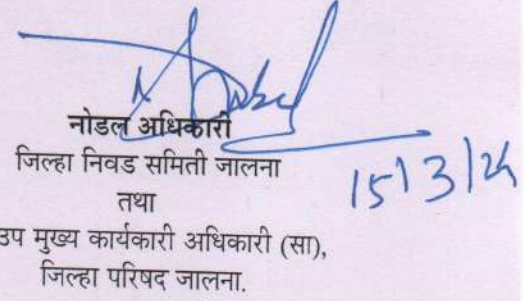 नोडल अधिकारी
जिल्हा निवड समिती जालना
तथा
उप मुख्य कार्यकारी अधिकारी (सा),
जिल्हा परिषद जालना.